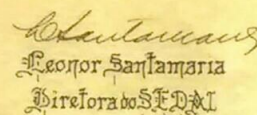 LSantamaria
Leonor Santamaria
Diretora do SEDAI